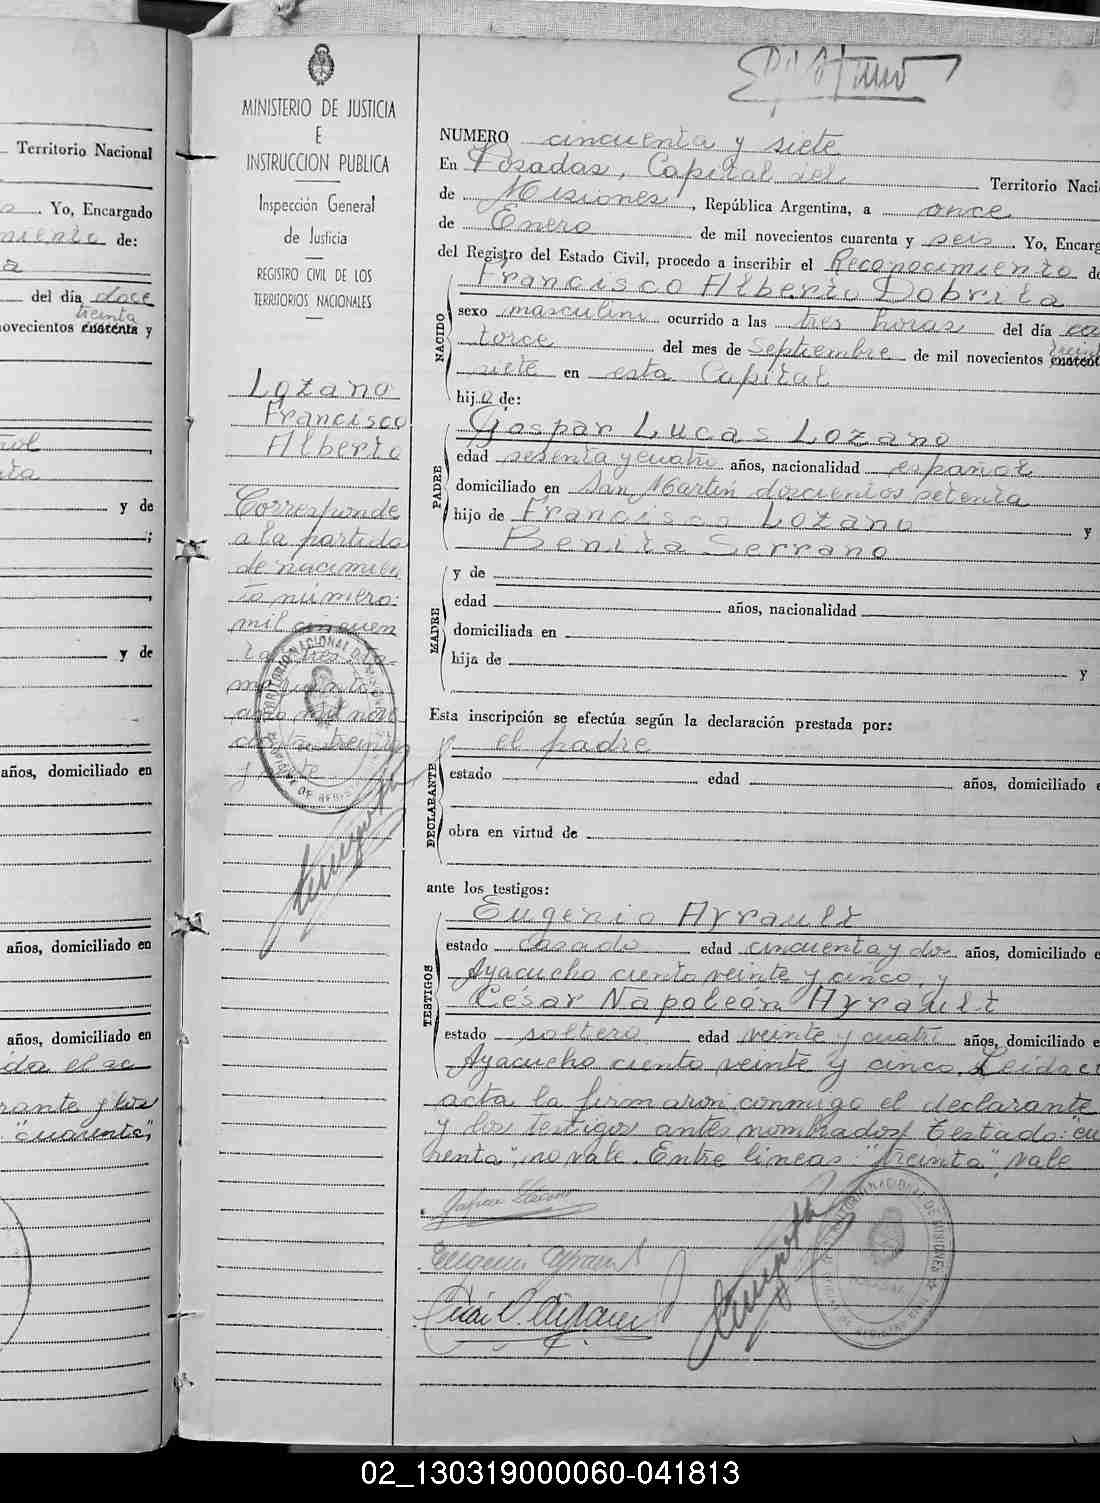 Territorio Nacional
Yo, Encargado
de:
del día doce
treinta
novecientos cuarenta y
y de
y de
años, domiciliado en
años, domiciliado en
años, domiciliado en
"cuarenta",
MINISTERIO DE JUSTICIA
E
INSTRUCCION PUBLICA
Inspección General
de Justicia
REGISTRO CIVIL DE LOS
TERRITORIOS NACIONALES
Lozano
Francisco
Alberto
Corresponde
a la partida
de nacimien
to número:
mil cincuen
NUMERO cincuenta y siete
En Posadas, Capital del Territorio Naci
de Misiones, República Argentina, a once
de Enero de mil novecientos cuarenta y seis. Yo, Encarg
del Registro del Estado Civil, procedo a inscribir el Reconocimiento de
NACIDO
Francisco Alberto Dobrila
sexo masculino ocurrido a las tres horas del día ca
torce del mes de Septiembre de mil novecientos
siete en esta Capital
hijo de:
PADRE
Gaspar Lucas Lozano
edad sesenta y cuatro años, nacionalidad español
domiciliado en San Martín doscientos setenta
hijo de Francisco Lozano y
Benita Serrano
MADRE
y de
edad años, nacionalidad
domiciliada en
hija de y
Esta inscripción se efectúa según la declaración prestada por:
DECLARANTE
el padre
estado edad años, domiciliado e
obra en virtud de
ante los testigos:
TESTIGOS
Eugenio Ayrault
estado casado edad cincuenta y dos años, domiciliado e
Ayacucho ciento veinte y cinco, y
César Napoleón Ayrault
estado soltero edad veinte y cuatro años, domiciliado e
Ayacucho ciento veinte y cinco. Leida el
acta la firmaron conmigo el declarante
y los testigos antes nombrados Testado: "cu
renta", no vale. Entre lineas: "treinta", vale
02_130319000060-041813